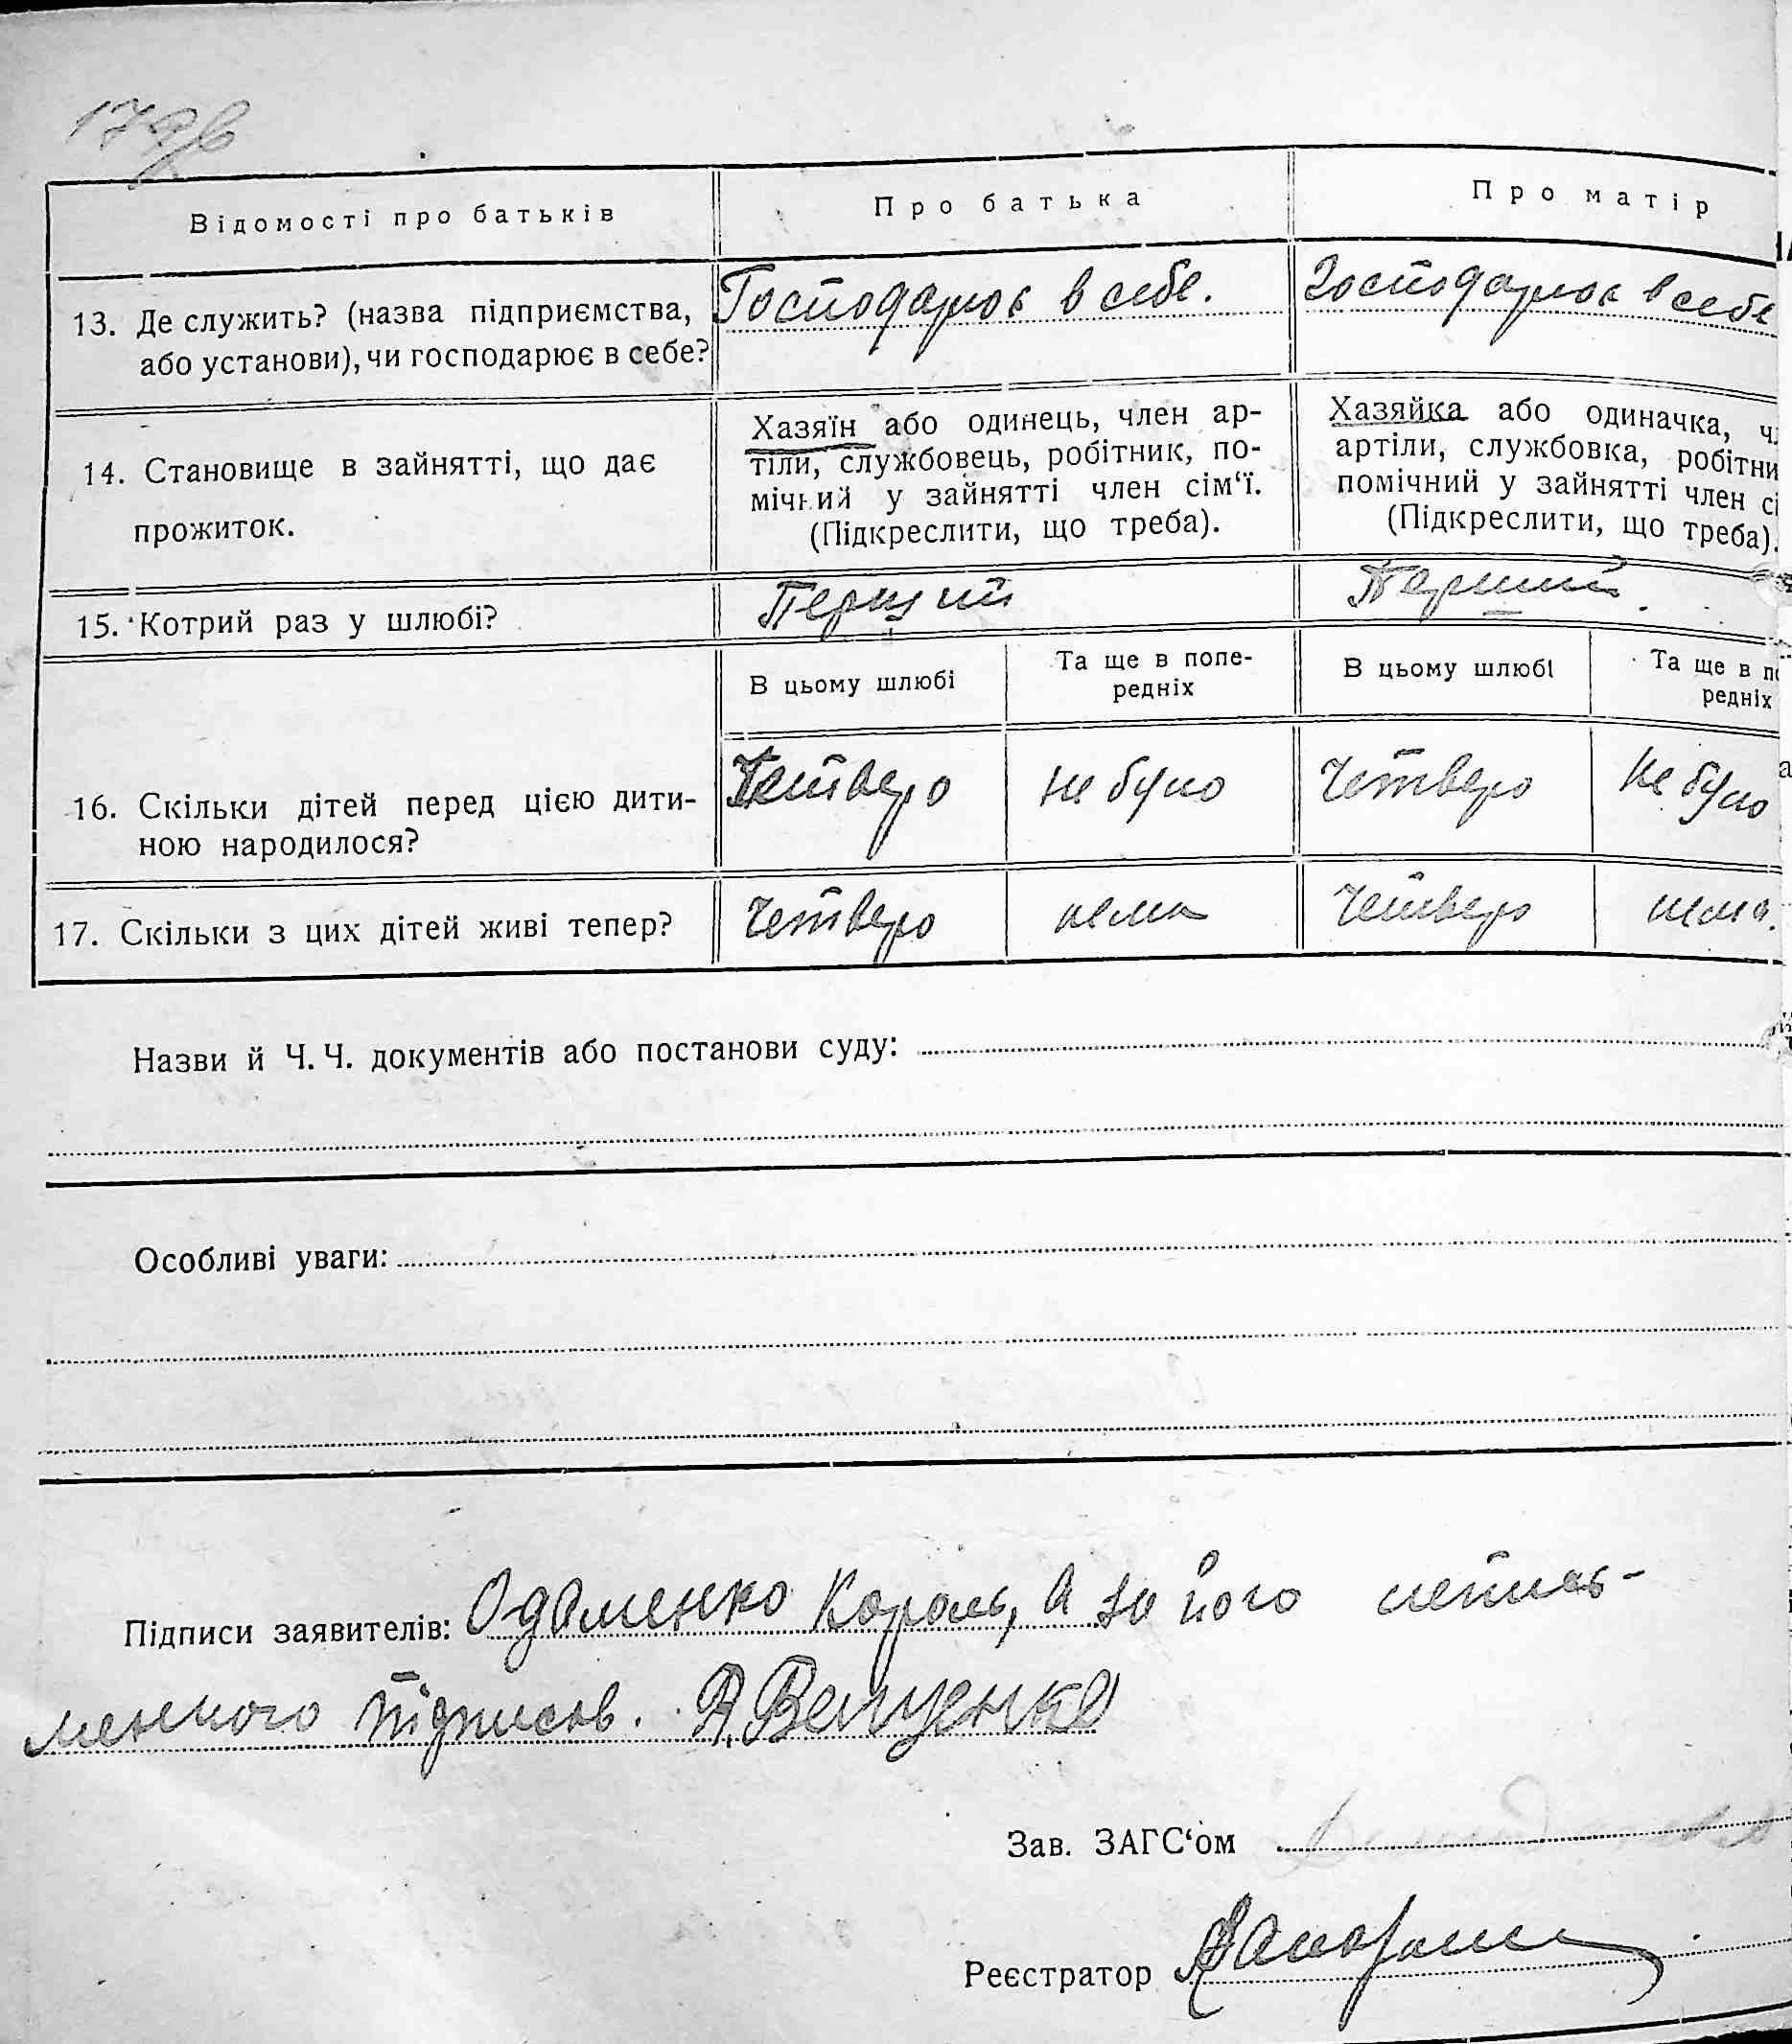 179 зв
Відомості про батьків Про батька Про матір
13. Де служить? (назва підприємства, або установи), чи господарює в себе? Господарює в себе. Господарює в себе
14. Становище в зайнятті, що дає прожиток.
Хазяїн або одинець, член ар-
тіли, службовець, робітник, по-
мічний у зайнятті член сім‘ї.
(Підкреслити, що треба).
Хазяйка або одиначка, ч
артіли, службовка, робітни
помічний у зайнятті член сі
(Підкреслити, що треба).
15. Котрий раз у шлюбі? Перщий Перший.
В цьому шлюбі Та ще в попе-
редніх
В цьому шлюбі Та ще в по
редніх
16. Скільки дітей перед цією дити-
ною народилося? Четверо не було Четверо не було
17. Скільки з цих дітей живі тепер? Четверо нема Четверо нема.
Назви й Ч. Ч. документів або постанови суду:
Особливі уваги:
Підписи заявителів: Одаменко Король, а за його непись-
менного підписав.
Зав. ЗАГС‘ом
Реєстратор